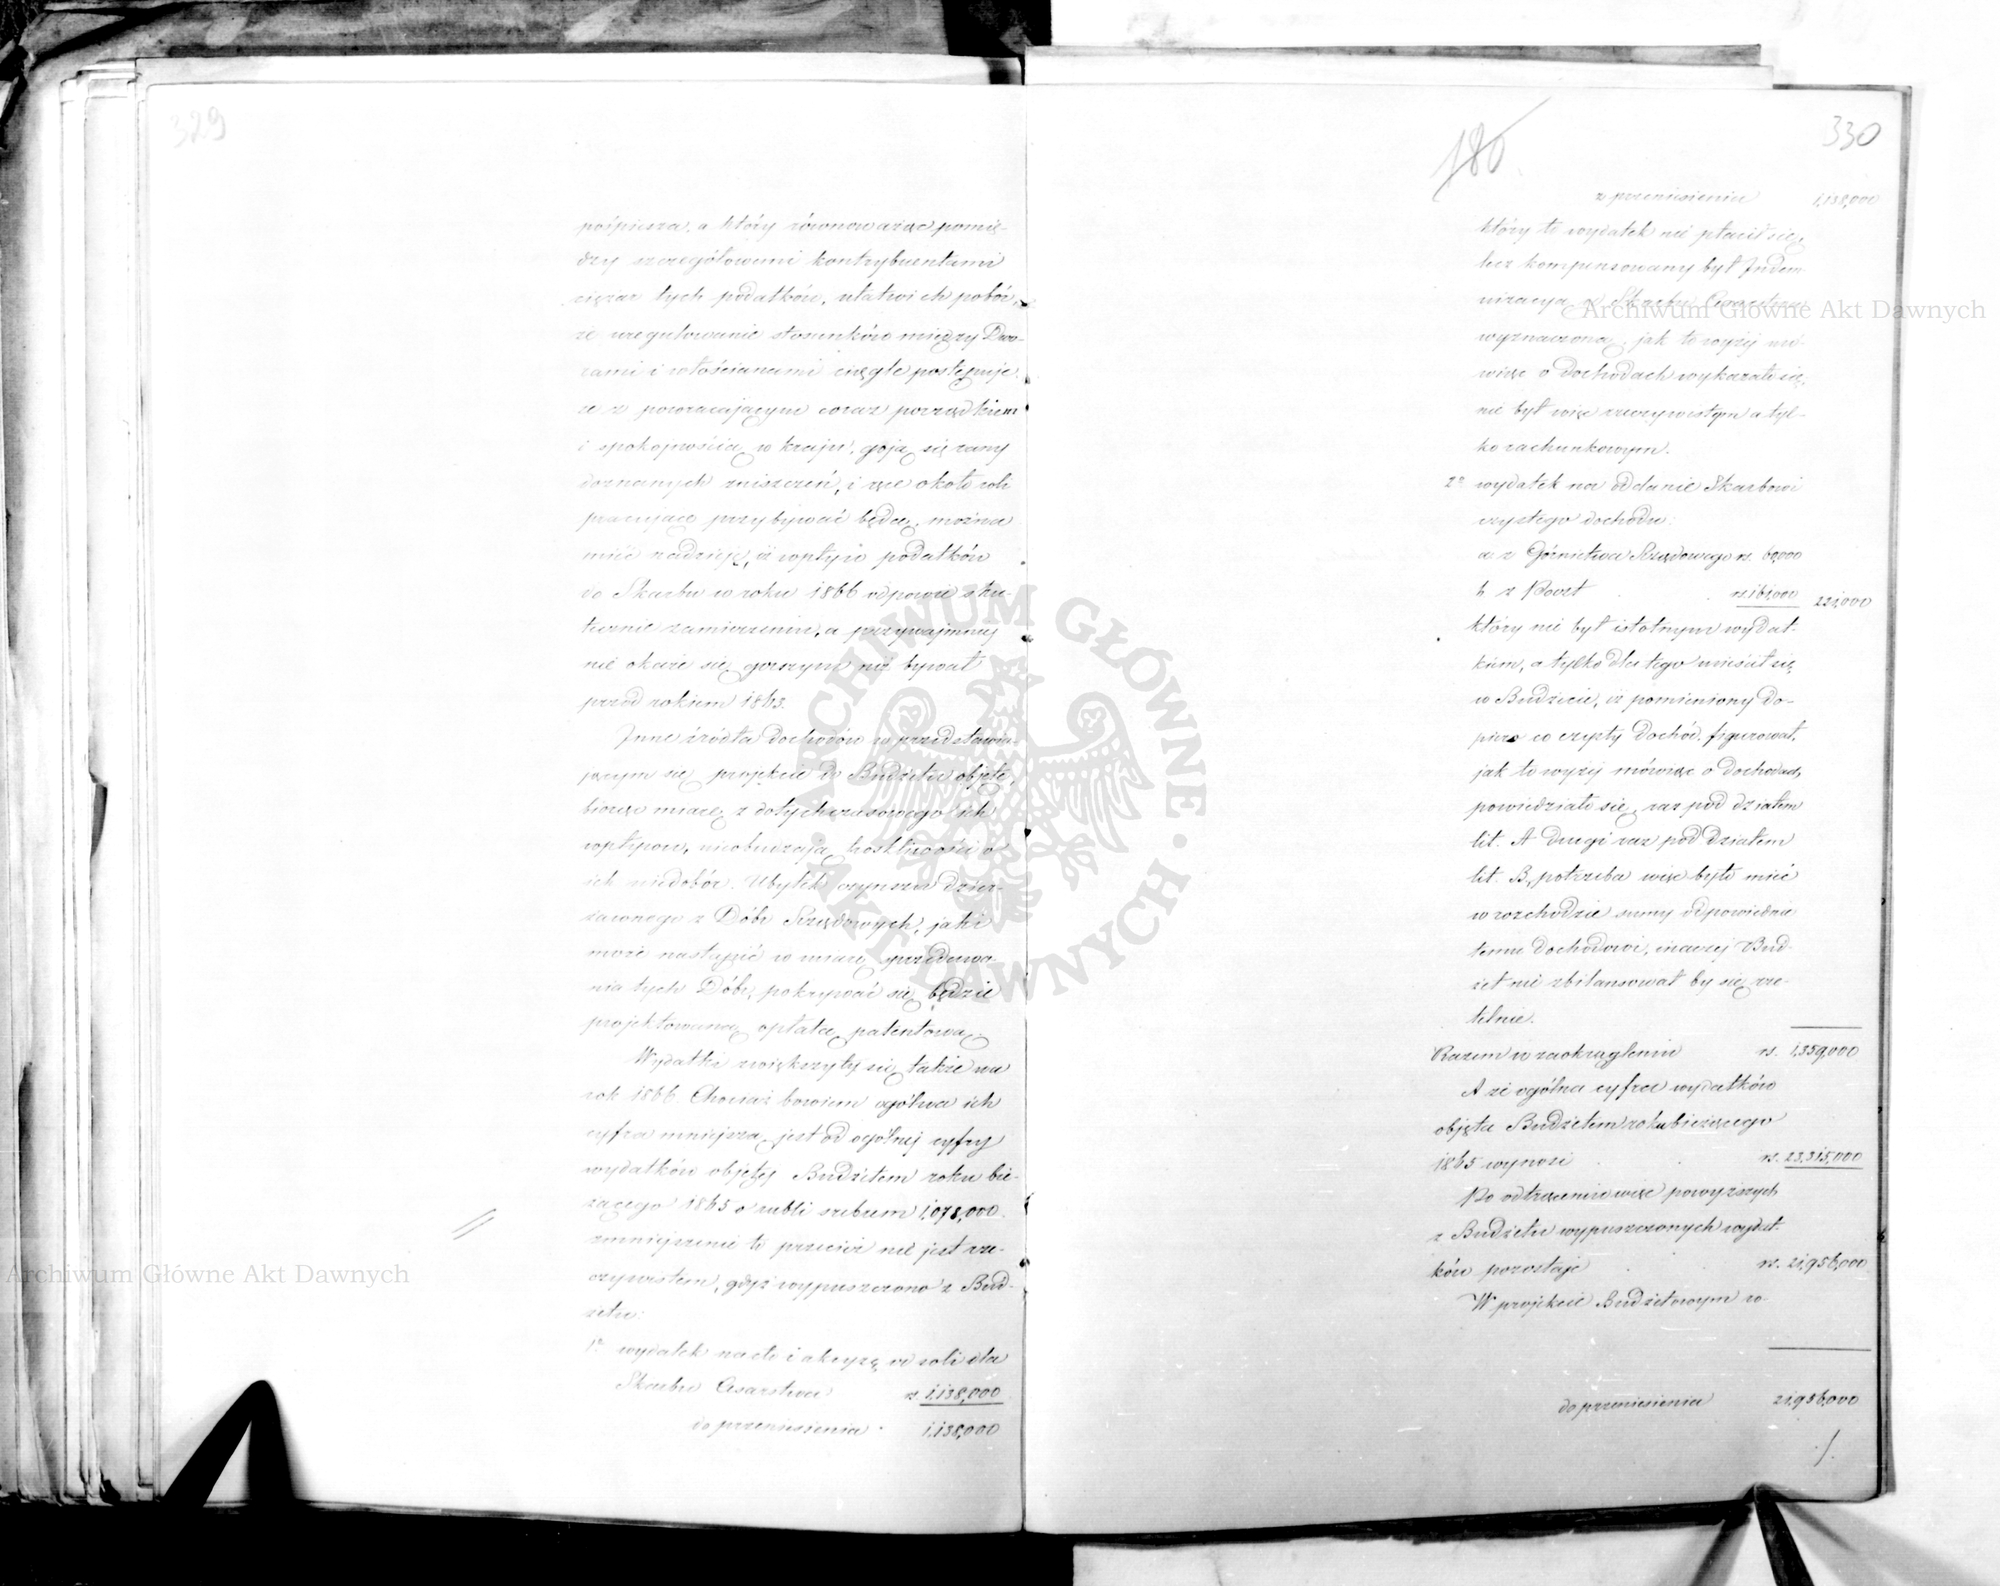 329
pośpiesza, a który równoważąc pomię-
dzy szczegółowemi kontrybuentami
ciężar tych podatków, ułatwi ich pobór,
że uregulowanie stosunków między Dwo-
rami i włościanami ciągle postępuje,
że z powracającym coraz porządkiem
i spokojnością w kraju, goją się rany
doznanych zniszczeń, i ręce około roli
pracujące przybywać będą, można
mieć nadzieję, iż wpływ podatków
do Skarbu w roku 1866 odpowie sku-
tecznie zamierzeniu, a przynajmniej
nie okaże się gorszym niż bywał
przed rokiem 1863.
Inne źródła dochodów w przedstawia-
jącym się projekcie do Budżetu objęte,
biorąc miarę z dotychczasowego ich
wpływu, nieobudzają troskliwości o
ich niedobór. Ubytek czynszu dzier-
żawnego z Dóbr Rządowych, jaki
może nastąpić w miarę sprzedawa-
nia tych Dóbr, pokrywać się będzie
projektowaną opłatą patentową.
Wydatki zwiększyły się także na
rok 1866. Chociaż bowiem ogólna ich
cyfra mniejszą jest od ogólnej cyfry
wydatków objętej Budżetem roku bie-
żącego 1865 o rubli srebrem 1,078,000.
zmniejszenie to przecież nie jest rze-
czywistem, gdyż wypuszczono z Bud-
żetu:
1o wydatek na cło i akcyzę od soli dla
Skarbu Cesarstwa rs. 1,138,000
do przeniesienia 1,138,000
180
330
z przeniesienia 1,138,000
który to wydatek nie płacił się,
lecz kompensowany był Indem-
nizacyą z Skarbu Cesarstwa
wyznaczoną, jak to wyżej mó-
wiąc o dochodach wykazało się,
nie był więc rzeczywistym a tyl-
ko rachunkowym.
2o wydatek na oddanie Skarbowi
czystego dochodu:
a. z Górnictwa Rządowego rs. 60,000
b z Poczt rs. 161,000 221,000
który nie był istotnym wydat-
kiem, a tylko dla tego mieścił się
w Budżecie, iż pomieniony do-
piero co czysty dochód, figurował,
jak to wyżej mówiąc o dochodach
powiedziało się, raz pod działem
lit. A drugi raz pod działem
lit. B, potrzeba więc było mieć
w rozchodzie sumy odpowiednie
temu dochodowi, inaczej Bud-
żet nie zbilansował by się rze-
telnie.
Razem w zaokrągleniu rs. 1,359,000
A że ogólna cyfra wydatków
objęta Budżetem roku bieżącego
1865 wynosi rs. 23,315,000
Po odtrąceniu więc powyższych
z Budżetu wypuszczonych wydat-
ków pozostaje rs. 21,956,000
W projekcie Budżetowym w
do przeniesienia 21,956,000
./.
Archiwum Główne Akt Dawnych
Archiwum Główne Akt Dawnych
ARCHIWUM GŁÓWNE · AKT DAWNYCH ·